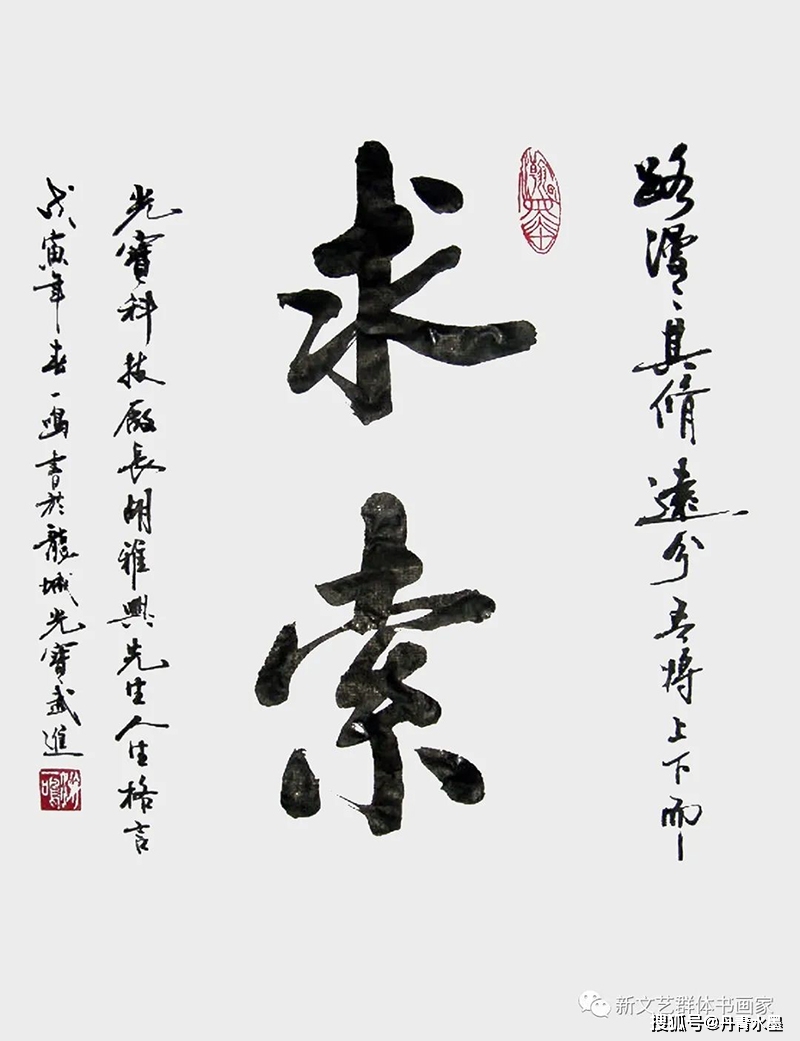 路漫〻其脩遠兮吾将上下而
求索
光寶科技廠長胡雅興先生人生格言
戊寅年春一鳴書於龍城光寶武進
新文艺群体书画家
搜狐号@丹青水墨